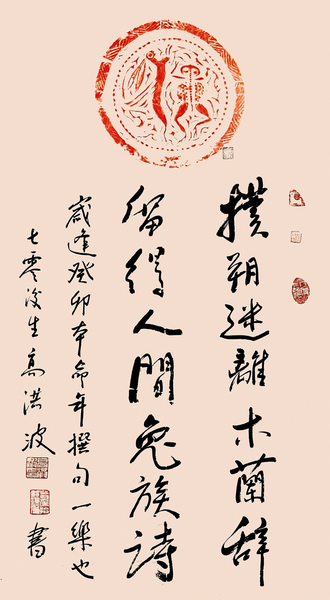 撲朔迷離木蘭辞
留得人間兔族詩
歲逢癸卯本命年撰句一樂也
七零後生高洪波書